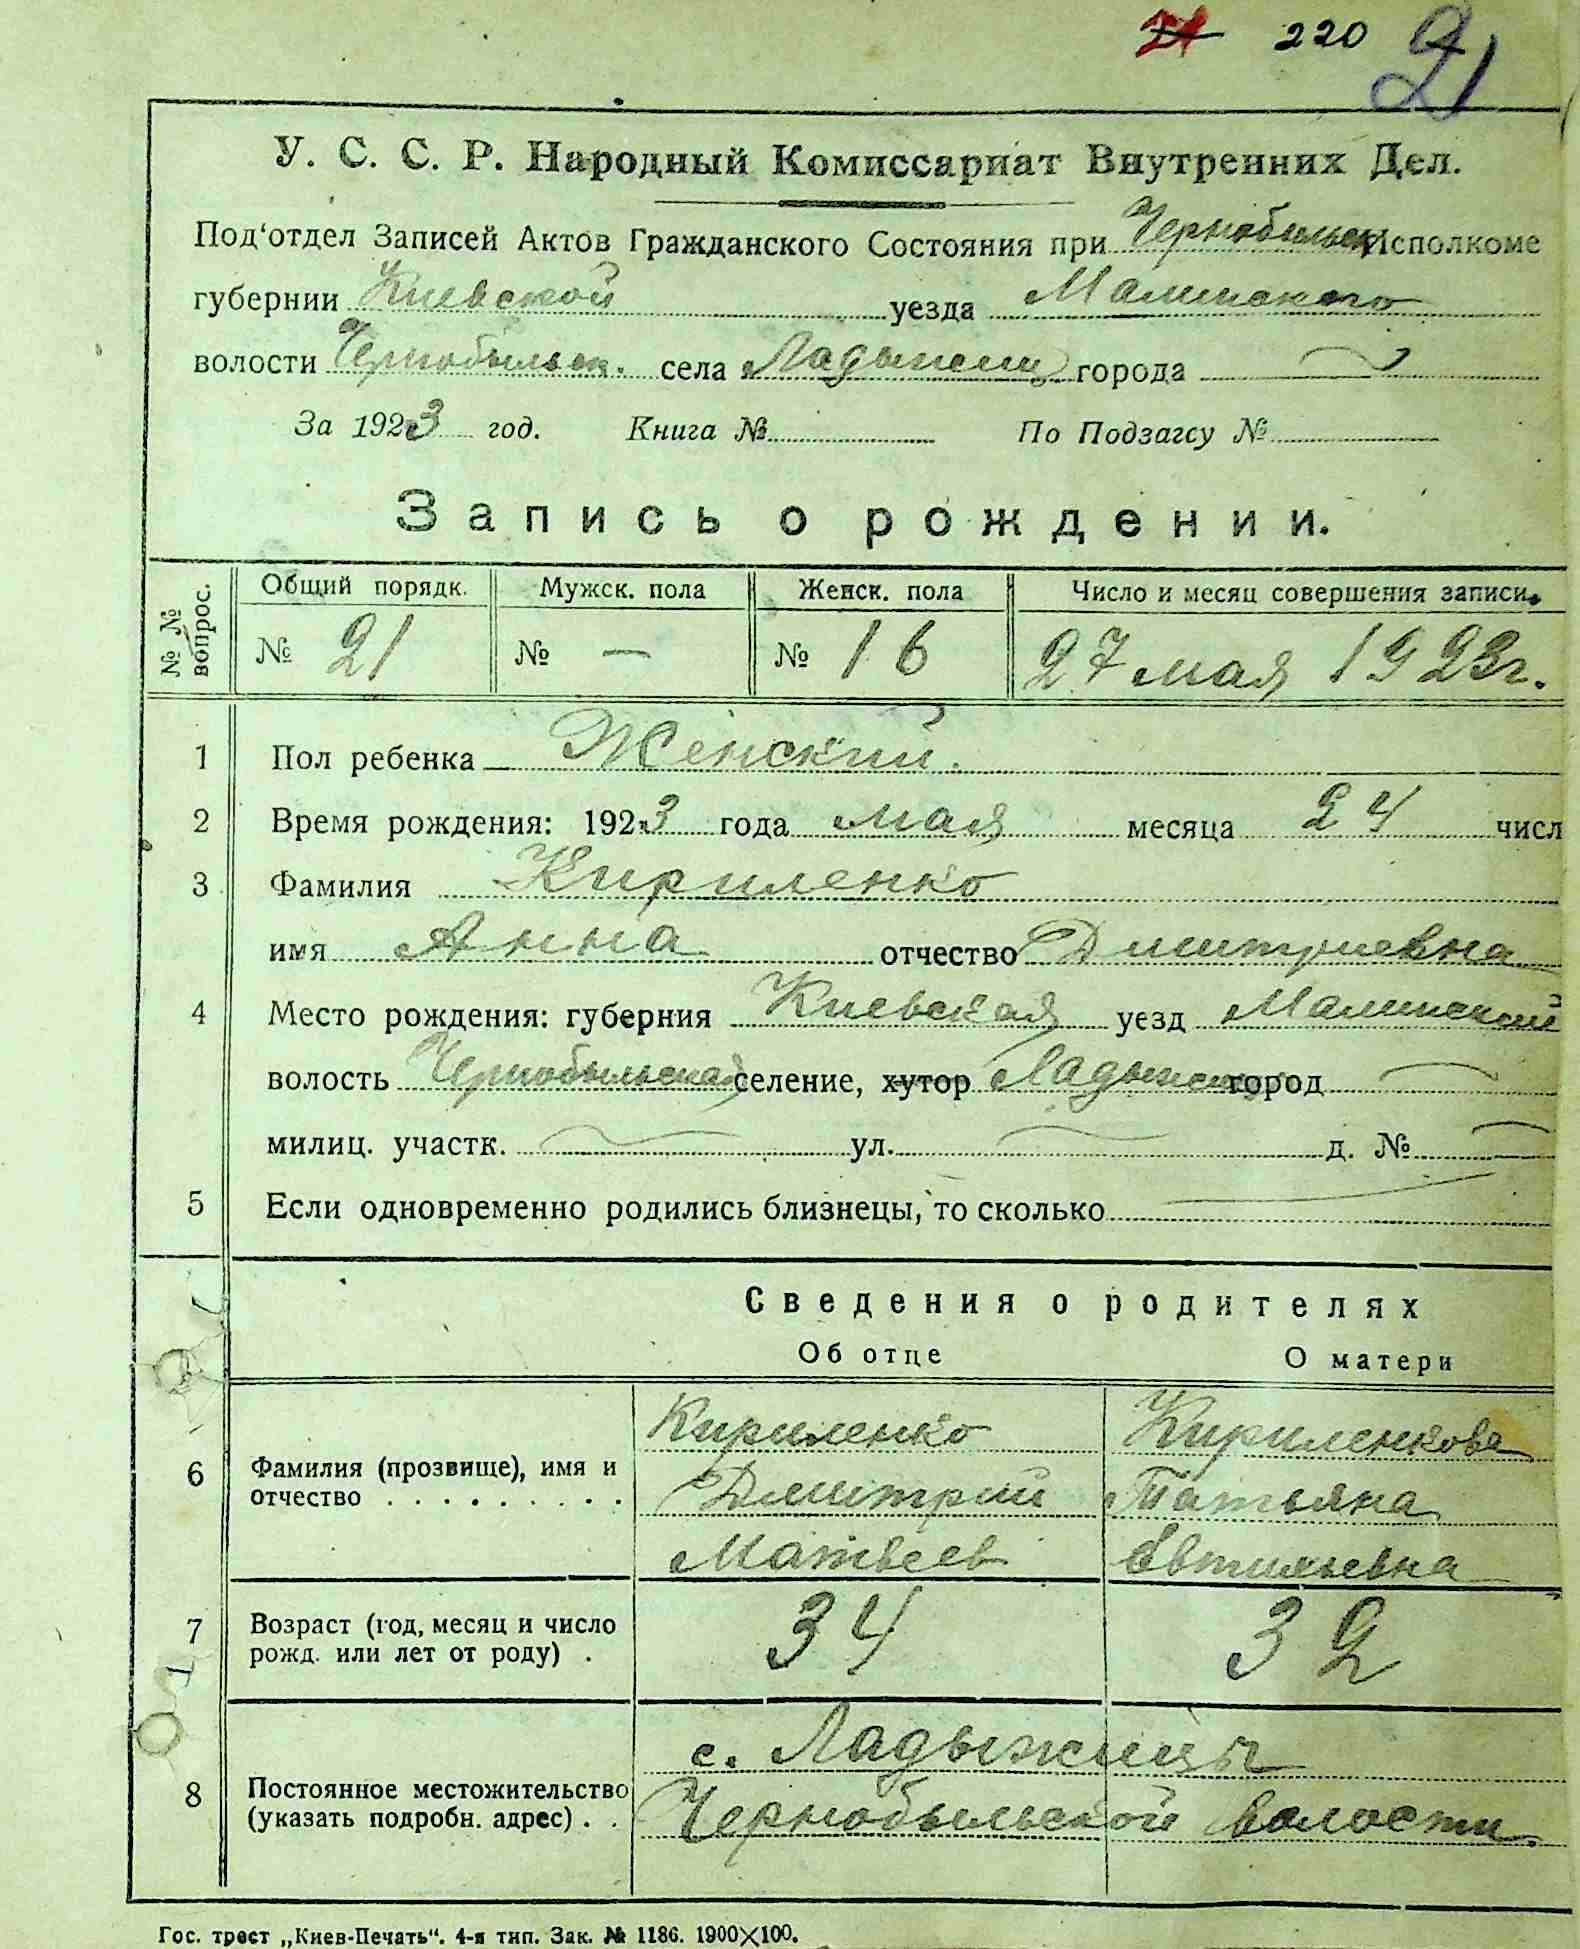 21 220 21
У. С. С. Р. Народный Комиссариат Внутренних Дел.
Под'отдел Записей Актов Гражданского Состояния при Чернобыльск Исполкоме
губернии Киевской уезда Малинского
волости Чернобыльск. села Ладыжичи города —
За 1923 год. Книга № По Подзагсу №
Запись о рождении.
№ № вопрос. Общий порядк. Мужск. пола Женск. пола Число и месяц совершения записи.
№ 21 № — № 16 27 мая 1923г.
1 Пол ребенка Женский.
2 Время рождения: 1923 года мая месяца 24 числ
3 Фамилия Кириленко
имя Анна отчество Дмитриевна
4 Место рождения: губерния Киевская уезд Малинский
волость Чернобыльская селение, хутор Ладыжичи город —
милиц. участк. — ул. — д. № —
5 Если одновременно родились близнецы, то сколько —
Сведения о родителях
Об отце О матери
6 Фамилия (прозвище), имя и отчество . . . . . . . . . .
Кириленко Кириленкова
Дмитрий Татьяна
Матвеев
7 Возраст (год, месяц и число рожд. или лет от роду) .
34 32
8 Постоянное местожительство (указать подробн. адрес) . .
с. Ладыжичи
Чернобыльской волости.
Гос. трест „Киев-Печать“. 4-я тип. Зак. № 1186. 1900×100.